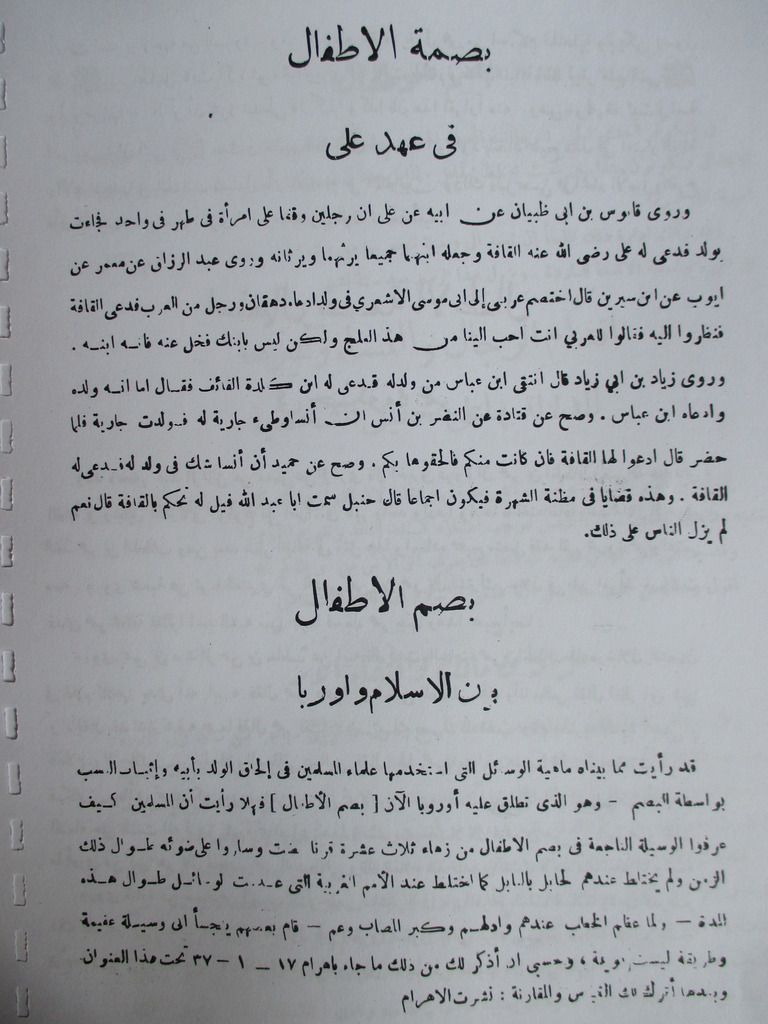 بصمة الاطفال
فى عهد على
وروى قابوس بن ابى ظبيان عن ابيه عن على ان رجلين وقعا على امرأة فى طهر فى واحد فجاءت
بولد فدعى له على رضى الله عنه القافة وجعله ابنهما جميعا يرثهما ويرثانه وروى عبد الرزاق عن معمر عن
ايوب عن ابن سيرين قال اختصم عربى إلى ابى موسى الاشعرى فى ولد ادعاه دهقان ورجل من العرب فدعى القافة
فنظروا اليه فقالوا للعربي انت احب الينا من هذ العلج ولكن ليس بابنك فخل عنه فانه ابنه .
وروى زياد بن ابي زياد قال انتفى ابن عباس من ولدله فدعى له ابن كلدة القائف فقال اما انه ولده
وادعاه ابن عباس . وصح عن قتادة عن النضر بن أنس ان أنسا وطىء جارية له فولدت جارية فلما
حضر قال ادعوا لها القافة فان كانت منكم فالحقوها بكم . وصح عن حميد أن أنسا شك فى ولد له فدعى له
القافة . وهذه قضايا فى مظنة الشهرة فيكون اجماعا قال حنبل سمعت ابا عبد الله قيل له تحكم بالقافة قال نعم
لم يزل الناس على ذلك.
بصم الاطفال
بين الاسلام واوربا
قد رأيت مما بيناه ماهية الوسائل التى استخدمها علماء المسلمين فى إلحاق الولد بأبيه وإثبات النسب
بواسطة البصم - وهو الذى تطلق عليه أوروبا الآن [ بصم الأطفال ] فهلا رأيت أن المسلمين كيف
عرفوا الوسيلة الناجعة فى بصم الاطفال من زهاء ثلاث عشرة قرنا مضت وساروا على ضوئه طوال ذلك
الزمن ولم يختلط عندهم الحابل بالنابل كما اختلط عند الأمم الغربية التى عدمت الوسائل طوال هذه
المدة — ولما عظم الخطاب عندهم وادلهم وكبر المصاب وعم — قام بعضهم يلجأ الى وسيلة عقيمة
وطريقة ليست ، وحسبى ان أذكر لك من ذلك ما جاء باهرام ١٧ — ١ — ٣٧ تحت هذا العنوان
وبعدها أترك لك القياس والمقارنة : نشرت الاهرام